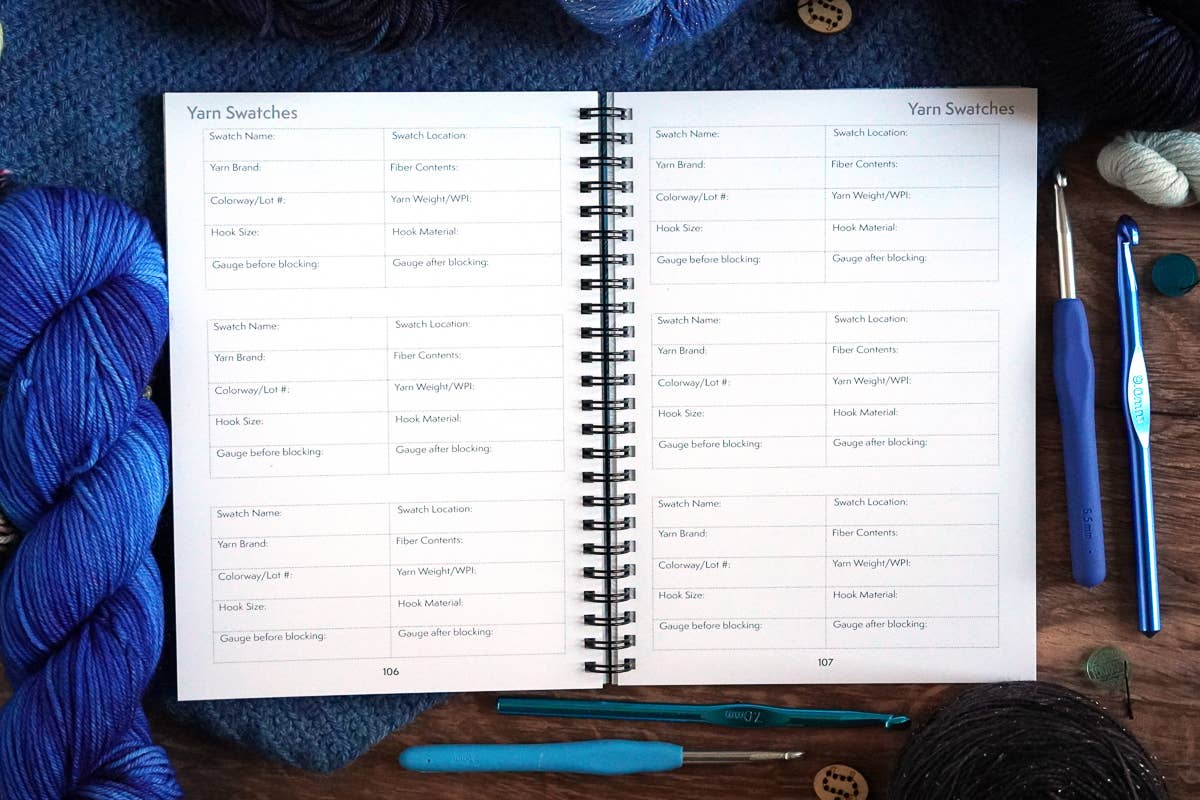 Yarn Swatches
Swatch Name: Swatch Location:
Yarn Brand: Fiber Contents:
Colorway/Lot #: Yarn Weight/WPI:
Hook Size: Hook Material:
Gauge before blocking: Gauge after blocking:
Swatch Name: Swatch Location:
Yarn Brand: Fiber Contents:
Colorway/Lot #: Yarn Weight/WPI:
Hook Size: Hook Material:
Gauge before blocking: Gauge after blocking:
Swatch Name: Swatch Location:
Yarn Brand: Fiber Contents:
Colorway/Lot #: Yarn Weight/WPI:
Hook Size: Hook Material:
Gauge before blocking: Gauge after blocking:
106
Yarn Swatches
Swatch Name: Swatch Location:
Yarn Brand: Fiber Contents:
Colorway/Lot #: Yarn Weight/WPI:
Hook Size: Hook Material:
Gauge before blocking: Gauge after blocking:
Swatch Name: Swatch Location:
Yarn Brand: Fiber Contents:
Colorway/Lot #: Yarn Weight/WPI:
Hook Size: Hook Material:
Gauge before blocking: Gauge after blocking:
Swatch Name: Swatch Location:
Yarn Brand: Fiber Contents:
Colorway/Lot #: Yarn Weight/WPI:
Hook Size: Hook Material:
Gauge before blocking: Gauge after blocking:
107
9.0mm
6.5mm
7.0mm